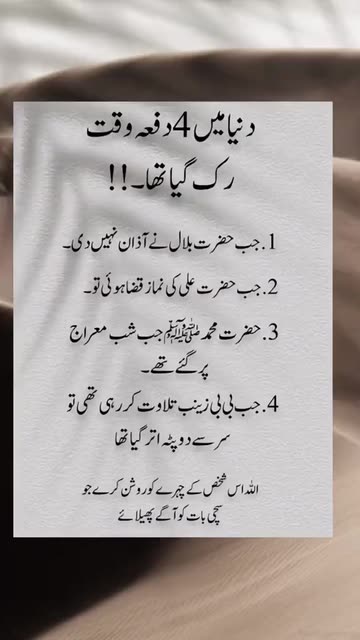 دنیا میں 4 دفعہ وقت
رک گیا تھا۔!!
1. جب حضرت بلال نے آذان نہیں دی۔
2. جب حضرت علی کی نماز قضا ہوئی تو۔
3. حضرت محمد ﷺ جب شب معراج
پر گئے تھے۔
4. جب بی بی زینب تلاوت کر رہی تھی تو
سر سے دوپٹہ اتر گیا تھا
اللہ اس شخص کے چہرے کو روشن کرے جو
سچی بات کو آگے پھیلائے